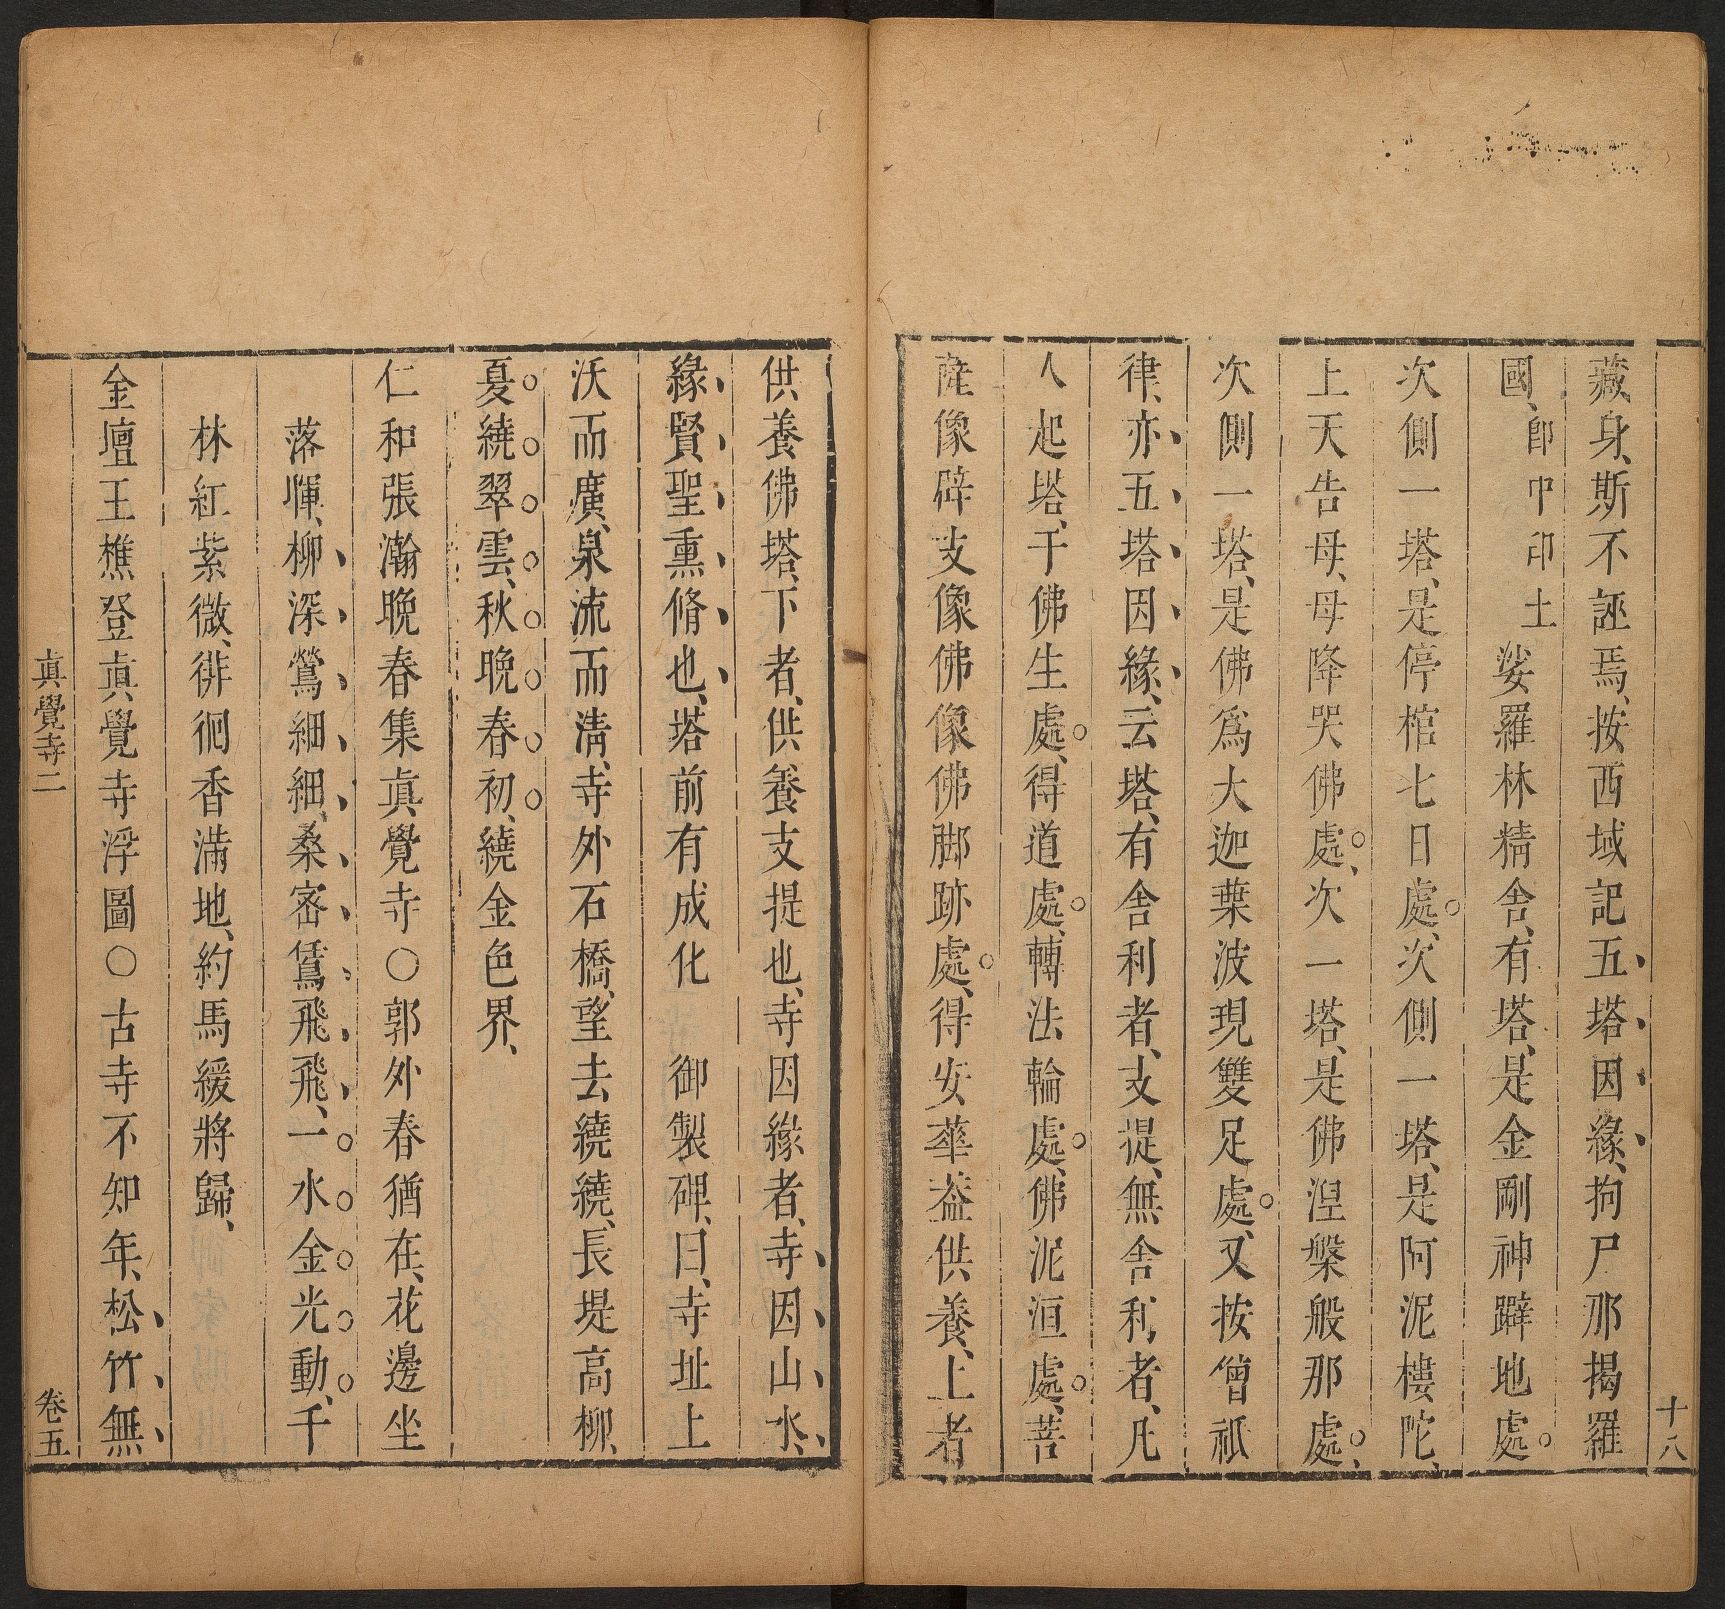 十八
藏身、斯不誣焉、按西域記五塔因緣、拘尸那揭羅
國、卽中印土娑羅林精舍、有塔、是金剛神躃地處。
次側一塔、是停棺七日處。次側一塔、是阿泥樓陀、
上天告母、母降哭佛處。次一塔、是佛涅槃般那處。
次側一塔、是佛爲大迦葉波現雙足處。又按僧祇
律、亦五塔因緣、云塔、有舍利者、支提、無舍利者、凡
人起塔、于佛生處。得道處。轉法輪處。佛泥洹處。菩
薩像辟支像佛像佛脚跡處。得安華葢供養、上者
供養佛塔、下者、供養支提也、寺因緣者、寺因山水、
緣賢聖熏脩也、塔前有成化 御製碑、曰、寺址上
沃而廣、泉流而淸、寺外石橋、望去繞繞、長堤高柳、
夏繞翠雲、秋晚春初、繞金色界、
仁和張瀚晚春集眞覺寺○郭外春猶在、花邊坐
落暉、柳深鶯細細、桑密鵀飛飛、一水金光動、千
林紅紫微、徘徊香滿地、約馬緩將歸、
金壇王樵登眞覺寺浮圖○古寺不知年、松竹無、
眞覺寺二
卷五